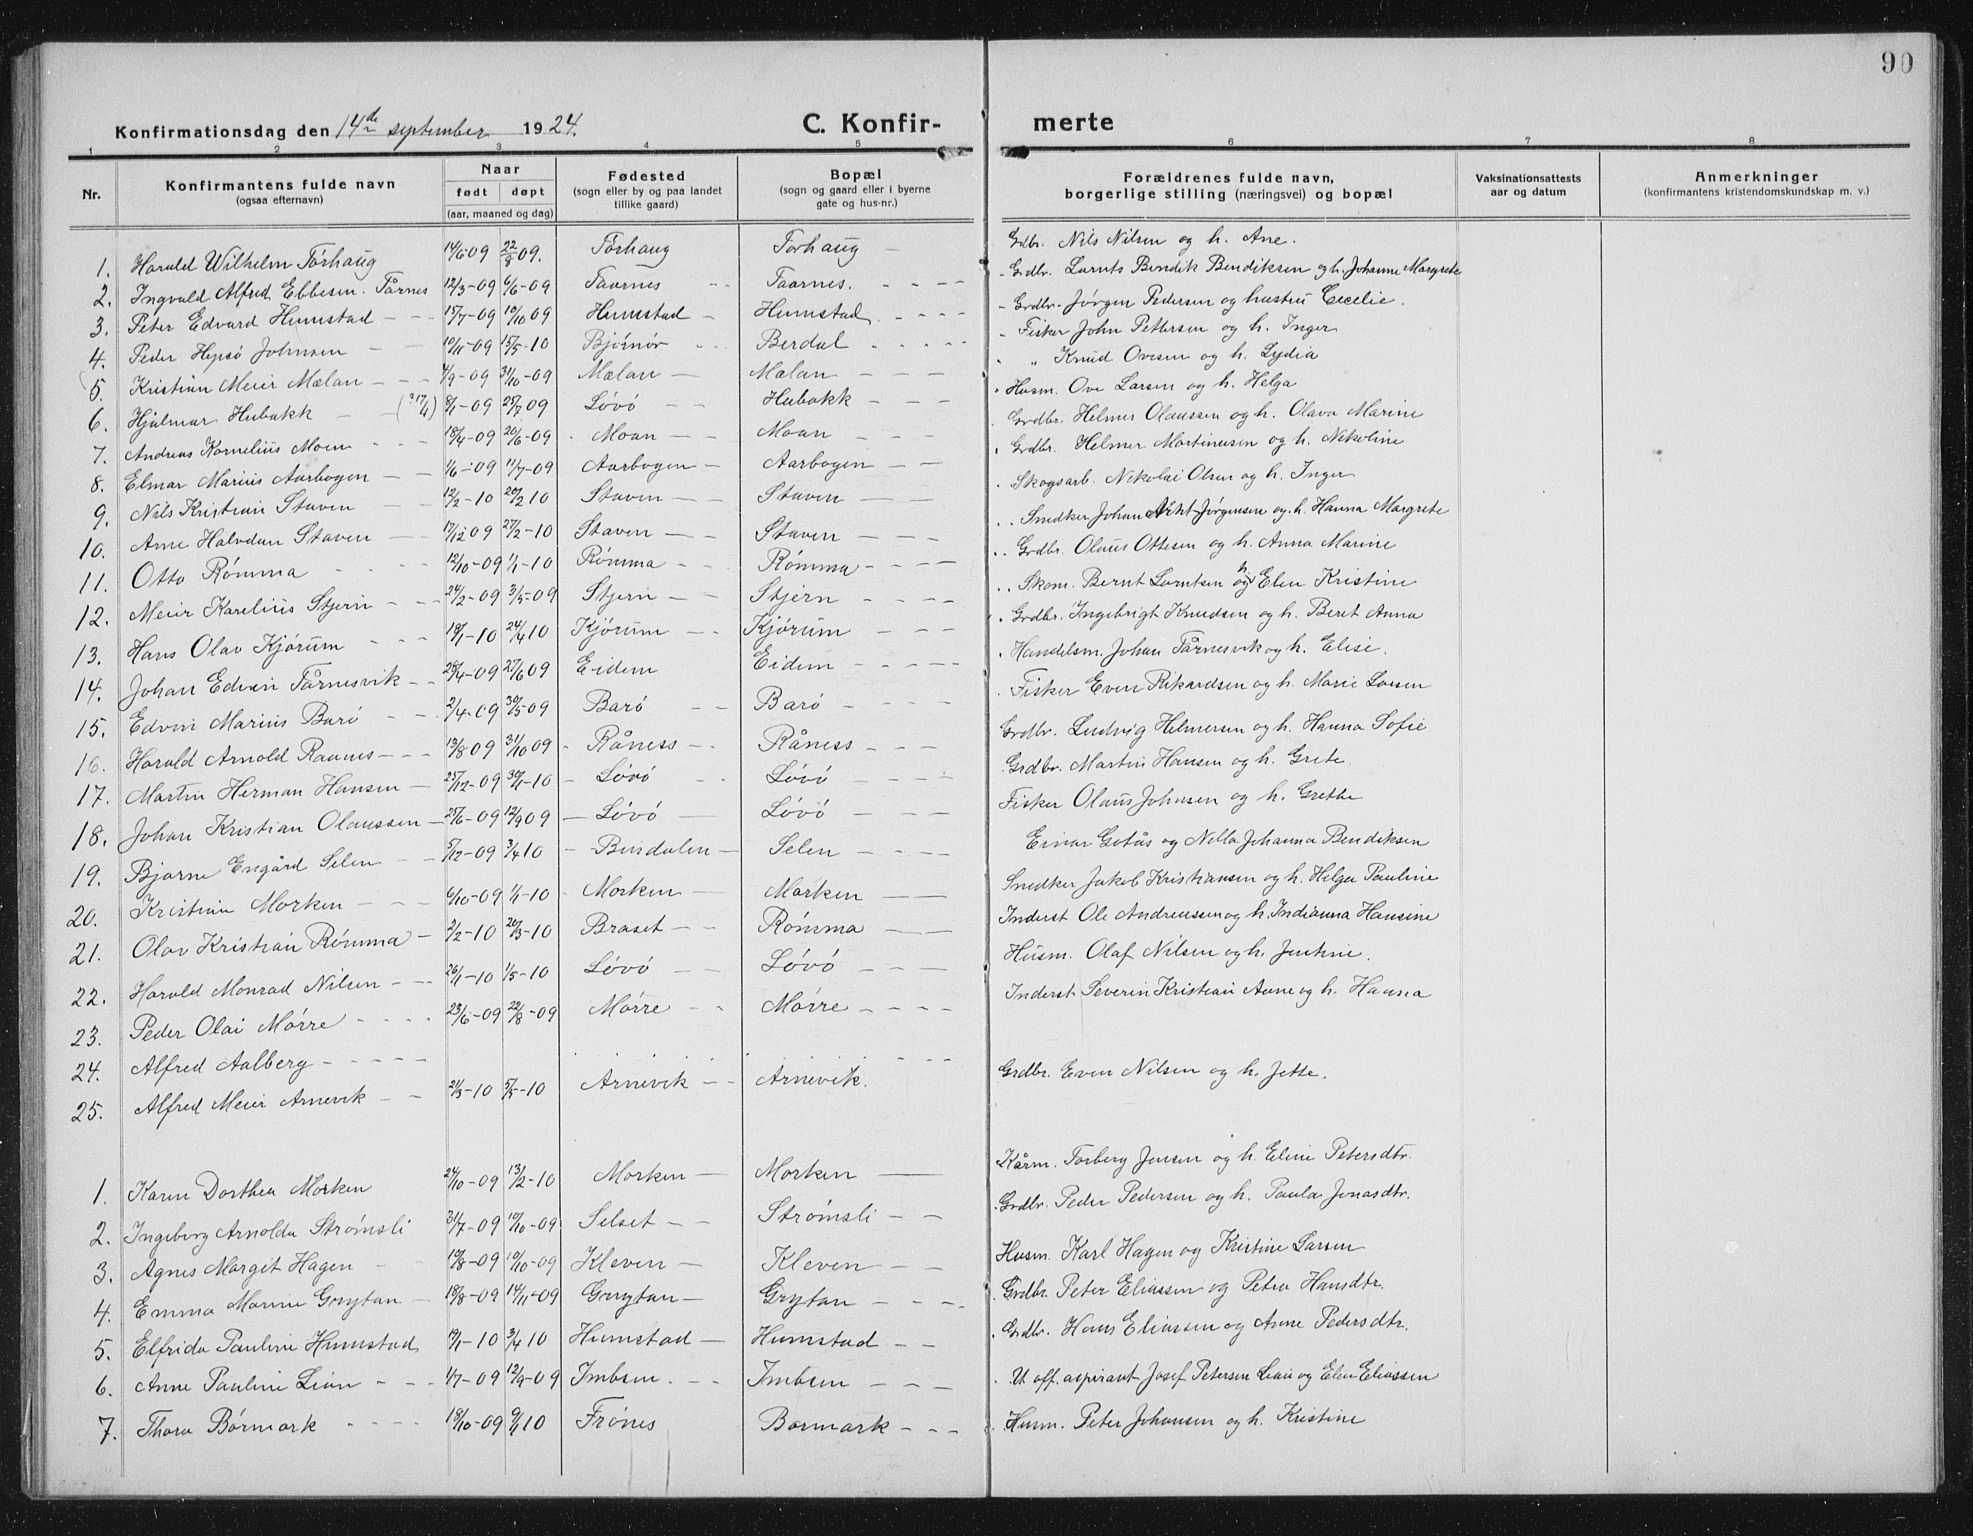 90
Konfirmationsdag den 14de september 1924.
C. Konfir-
merte
1 2 3 4 5 6 7 8
Nr.
Konfirmantens fulde navn
(ogsaa efternavn)
Naar
født døpt
(aar, maaned og dag)
Fødested
(sogn eller by og paa landet
tillike gaard)
Bopæl
(sogn og gaard eller i byerne
gate og hus-nr.)
Forældrenes fulde navn,
borgerlige stilling (næringsvei) og bopæl
Vaksinationsattests
aar og datum
Anmerkninger
(konfirmantens kristendomskundskap m. v.)
1. Harald Wilhelm Tørhaug 14/6-09 22/8 09. Tørhaug Torhaug Grdbr. Nils Nilsen og h. Ane.
2. Ingvald Alfred Ebbesen. Tårnes 12/3-09 6/6-09 Taarnes Taarnes. Grdbr. Lornts Bendik Bendiksen og h. Johanne Margrete
3. Peter Edvard Humstad 15/7-09 10/10 09 Humstad Humstad Grdbr. Jørgen Pedersen og hustru Cecelie.
4. Peder Hepsø Johnsen 10/11-09 15/5-10 Bjørnør Berdal Fisker John Pettersen og h. Inger
5. Kristian Meier Mælan 4/9-09 31/10-09 Mælan Mælan " Knud Ovesen og h. Lydia
6. Hjalmar Hubakk (? 17/4) 8/1-09 25/7 09 Løvø Hubakk Husm. Ove Larsen og h. Helga
7. Andreas Kornelius Moen 18/4-09 20/6-09 Moan Moan Grdbr. Helmer Olaussen og h. Olava Marine
8. Elmar Marius Aarbogen 1/6-09 11/7-09 Aarbogen Aarbogen Grdbr. Helmer Martinusen og h. Nikoline
9. Nils Kristian Staven 12/2-10 20/2 10 Staven Staven Skogsarb. Nikolai Olsen og h. Inger
10. Arne Halvdan Staven 17/12 09 27/2-10 Staven Staven Snedker Johan Arnt Jørgensen og h. Hanna Margrete
11. Otto Rømma 12/10-09 1/1-10 Rømma Rømma Grdbr. Olaus Ottesen og h. Anna Marine
12. Meier Karelius Stjern 24/2-09 3/5-09 Stjern Stjern Skom. Bernt Lorntsen og h. Elen Kristine
13. Hans Olav Kjørum 18/1-10 24/4 10 Kjørum Kjørum Grdbr. Ingebrigt Knudsen og h. Beret Anna
14. Johan Edvin Tårnesvik 28/4-09 27/6 09 Eidem Eidem Handelsm. Johan Tårnesvik og h. Elise.
15. Edvin Marius Barø 2/4-09 30/5-09 Barø Barø Fisker Even Rikardsen og h. Marie Larsen
16. Harald Arnold Raanes 13/8 09 31/10 09 Råness Råness Grdbr. Ludvig Helmersen og h. Hanna Sofie
17. Martin Herman Hansen 25/12-09 30/1-10 Løvø Løvø Grdbr. Martin Hansen og h. Grete.
18. Johan Kristian Olaussen 25/6-09 12/9 09 Løvø Løvø Fisker Olaus Johnsen og h. Grethe
19. Bjarne Engård Selen 5/12-09 3/4 10 Bensdalen Selen Einar Gotås og Nella Johanna Bendiksen
20. Kristian Morken 6/10-09 1/1-10 Morken Morken Snedker Jakob Kristiansen og h. Helga Pauline
21. Olav Kristian Rømma 2/2-10 20/3-10 Braset Rømma Inderst Ole Andreassen og h. Indianna Hansine
22. Harald Monrad Nilsen 26/1-10 1/5-10 Løvø Løvø Husm. Olaf Nilsen og h. Jentine.
23. Peder Olai Mørre 23/6-09 22/8-09 Mørre Mørre Inderst Severin Kristian Aune og h. Hanna
24. Alfred Aalberg
25. Alfred Meier Arnevik 21/3-10 5/5-10 Arnevik Arnevik. Grdbr. Even Nilsen og h. Jette.
1. Karen Dorthea Morken 24/10-09 13/2-10 Morken Morken Kårm. Torberg Jensen og h. Eline Petersdtr.
2. Ingeborg Arnolda Strømsli 31/7-09 10/10-09 Selset Strømsli Grdbr. Peder Pedersen og h. Paula Jonasdtr.
3. Agnes Margit Hagen 10/8-09 10/10-09 Kleven Kleven Husm. Karl Hagen og Kristine Larsen
4. Emma Marine Grytan 18/8-09 14/11-09 Grytan Grytan Grdbr. Peter Eliassen og Petra Hansdtr.
5. Elfrida Pauline Humstad 19/1-10 3/4 10 Humstad Humstad Grdbr. Hans Eliassen og Anne Pedersdtr.
6. Anne Pauline Lian 4/7-09 12/9-09 Imbsen. Imbsen U. off. aspirant Josef Petersen Lian og Elen Eliassen
7. Thora Børmark 18/10-09 9/1 10 Frønes Bormark Husm. Peter Johansen og h. Kristine